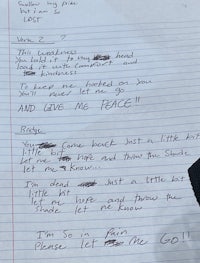 Swallow my pride
but i am so
LOST
Verse 2 ?
This weakness
You hold it to my head
load it with comfort and
kindness
To keep me hooked on you
You'll never let me go
AND GIVE ME PEACE!!
Bridge
You come back Just a little bit
little
Let me hope and throw the shade
let me know...
I'm dead Just a little bit
little bit
let me hope and throw the
shade let me know
I'm so in pain
Please let me GO!!